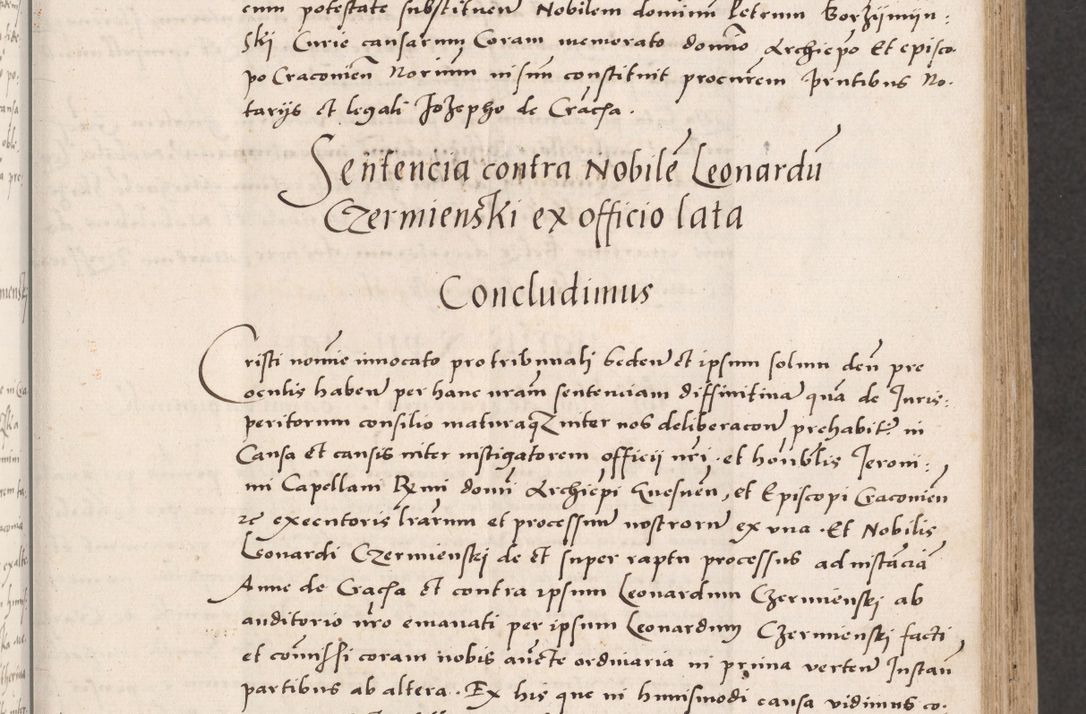 eum potestate substituen̄ Nobilem dominum Petrum Borzÿmÿn:
ski Curie causarum Coram memorato domīo Archiepō Et episco-
po Craconien̄ Norium nisum constituit procurem Pñtibus No-
tarijs et legali Jozepho de Cracha.
Sentencia contra Nobilē Leonardū
Czermienski ex officio lata
Concludimus
Cristi nomīe innocato pro tribunali sedeñ et ipsum solum deū pre
oculis habeñ per hanc nram̄ sentenciam diffinitiua quā de Juris:
peritorum consilio maturaqz inter nos deliberacoñ prehabit̄ in
Causa et causis inter instigatorem officij nrī et honblis Jeroni:
mi Capellani Rx̄mi domī Archiepi Gnesneñ, et Episcopi Cracouieñ
zc̄ executoris lrārum et processuū nostrorū ex vna. Et Nobilis
Leonardi Czermienski de et super raptu processus ad instāciā
Anne de Cracha et contra ipsum Leonardum Czermienski ab
auditorio nr̄o emanati per ipsum Leonardum Czermienski facti
et com̄issi coram nobis aucte ordinaria in prima verteñ Instan̄
partibus ab altera. Ex his que in huiusmodi causa vidimus co-